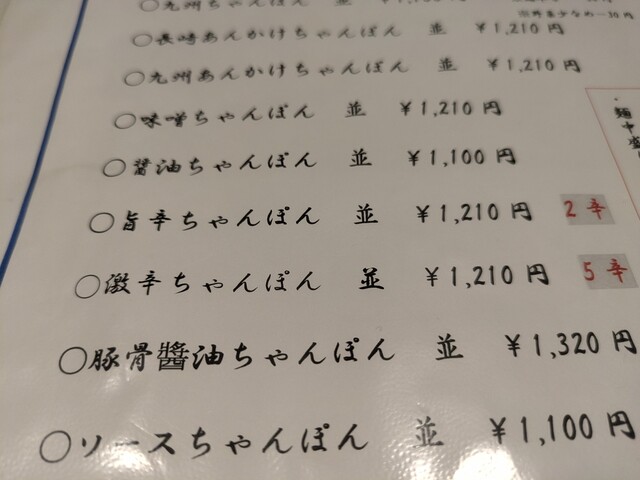 ○九州ちゃんぽん
※野菜少なめ-10円
○長崎あんかけちゃんぽん 並 ¥1,210円
○九州あんかけちゃんぽん 並 ¥1,210円
○味噌ちゃんぽん 並 ¥1,210円
麺中盛
○醤油ちゃんぽん 並 ¥1,100円
○旨辛ちゃんぽん 並 ¥1,210円 2辛
○激辛ちゃんぽん 並 ¥1,210円 5辛
○豚骨醬油ちゃんぽん 並 ¥1,320円
○ソースちゃんぽん 並 ¥1,100円